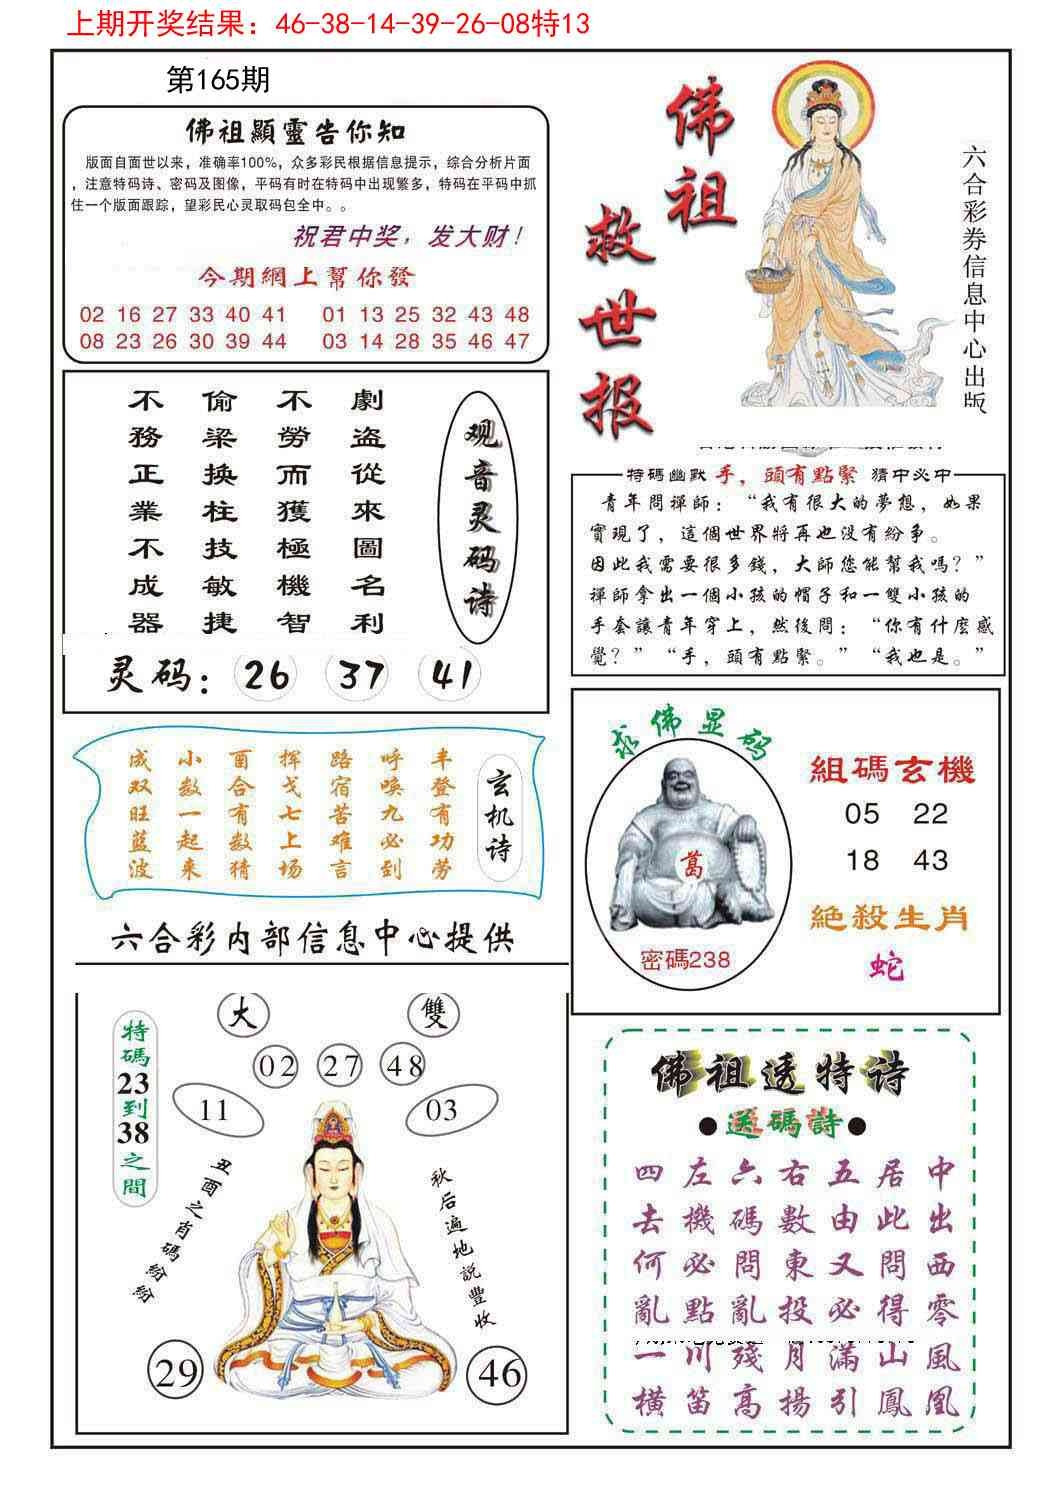 上期开奖结果：46-38-14-39-26-08特13
第165期
佛祖顯靈告你知
版面自面世以来，准确率100%，众多彩民根据信息提示，综合分析片面
，注意特码诗、密码及图像，平码有时在特码中出现繁多，特码在平码中抓
住一个版面跟踪，望彩民心灵取码包全中。。
祝君中奖，发大财！
今期網上幫你發
02 16 27 33 40 41 01 13 25 32 43 48
08 23 26 30 39 44 03 14 28 35 46 47
佛祖
救世报
六合彩券信息中心出版
观音灵码诗
劇盗從來圖名利
不勞而獲極機智
偷梁换柱技敏捷
不務正業不成器
灵码：26 37 41
特碼幽默 手，頭有點緊 猜中必中
青年問禪師：“我有很大的夢想，如果
實現了，這個世界將再也没有紛争。
因此我需要很多錢，大師您能幫我嗎？”
禪師拿出一個小孩的帽子和一雙小孩的
手套讓青年穿上，然後問：“你有什麼感
覺？”“手，頭有點緊。”“我也是。”
玄机诗
丰登有功劳
呼唤九必到
路宿苦难言
挥戈七上场
酉合有数猜
小数一起来
成双旺蓝波
六合彩内部信息中心提供
求佛显码
萬
密碼238
組碼玄機
05 22
18 43
絶殺生肖
蛇
特碼23到38之間
大 雙
02 27 48
11 03
丑酉之肖碼紛紛
秋后遍地説豐收
29 46
佛祖透特诗
●送碼詩●
中出西零風凰
居此問得山鳳
五由又必滿引
右數東投月揚
六碼問亂殘高
左機必點川笛
四去何亂一橫